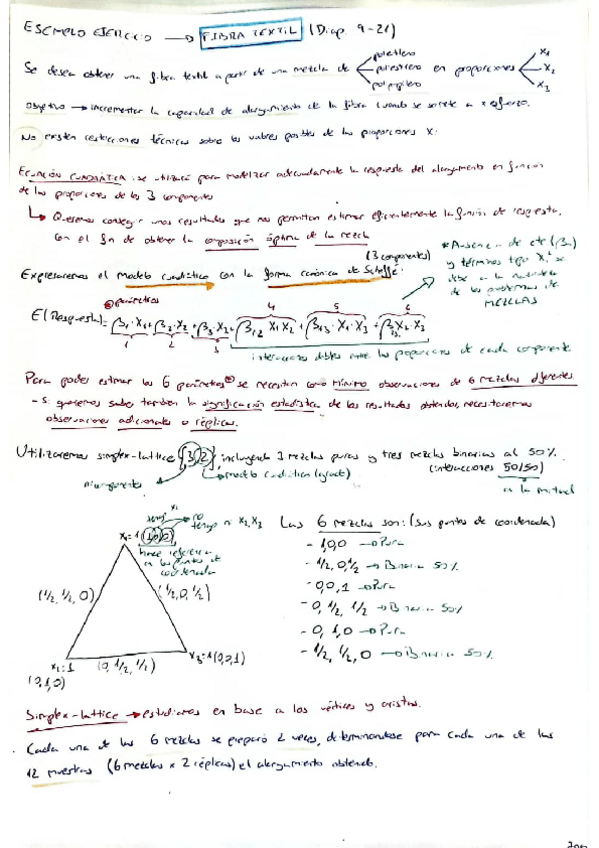 ESEMPLO EJERCICIO → FIBRA TEXTIL (Diap. 9-21)
Se desea obtener una fibra textil a partir de una mezcla de polietileno poliestireno polipropileno en proporciones X₁ X₂ X₃
Objetivo → incrementar la capacidad de alargamiento de la fibra cuando se somete a x esfuerzo.
No existen restricciones técnicas sobre los valores posibles de las proporciones X.
ECUACIÓN CUADRÁTICA: se utilizará para modelizar adecuadamente la respuesta del alargamiento en función
de las proporciones de los 3 componentes
↳ Queremos conseguir unos resultados que nos permitan estimar eficientemente la función de respuesta,
con el fin de obtener la composición óptima de la mezcla
(3 componentes)
Expresaremos el modelo cuadrático con la forma canónica de Scheffé:
* Ausencia de cte (β₀)
y términos tipo X² se
debe a la naturaleza
de los problemas de
MEZCLAS
⑥ parámetros
E(Respuesta) = β₁·X₁ + β₂·X₂ + β₃·X₃ + β₁₂ X₁X₂ + β₁₃·X₁·X₃ + β₂₃X₂·X₃
1 2 3 4 5 6
interacciones dobles entre las proporciones de cada componente
Para poder estimar los 6 parámetros se necesitan como mínimo observaciones de 6 mezclas diferentes
- Si queremos saber también la significación estadística de los resultados obtenidos, necesitaremos
observaciones adicionales o réplicas.
Utilizaremos simplex-lattice {3,2}, incluyendo 3 mezclas puras y tres mezclas binarias al 50%.
(interacciones 50/50)
a la mitad
nº componentes
modelo cuadrático (grado)
X₁=1 (1,0,0)
tengo X₁
no tengo ni X₂,X₃
hace referencia
a los puntos de
coordenada
(1/2, 1/2, 0)
(1/2, 0, 1/2)
X₂=1 (0, 1/2, 1/2) X₃=1(0,0,1)
(0,1,0)
Las 6 mezclas son: (sus puntos de coordenada)
- 1,0,0 → Pura
- 1/2, 0, 1/2 → Binaria 50%
- 0,0,1 → Pura
- 0, 1/2, 1/2 → Binaria 50%
- 0, 1, 0 → Pura
- 1/2, 1/2, 0 → Binaria 50%.
Simplex-lattice → estudiamos en base a los vértices y aristas.
Cada una de las 6 mezclas se preparó 2 veces, determinándose para cada una de las
12 muestras (6 mezclas x 2 réplicas) el alargamiento obtenido.